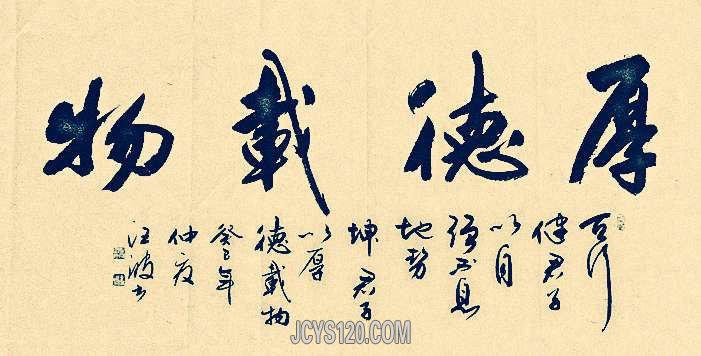 厚德載物
天行
健君子
以自
强不息
地势
坤君子
以厚
德載物
癸巳年
仲夏
汪波书
JCYS120.COM